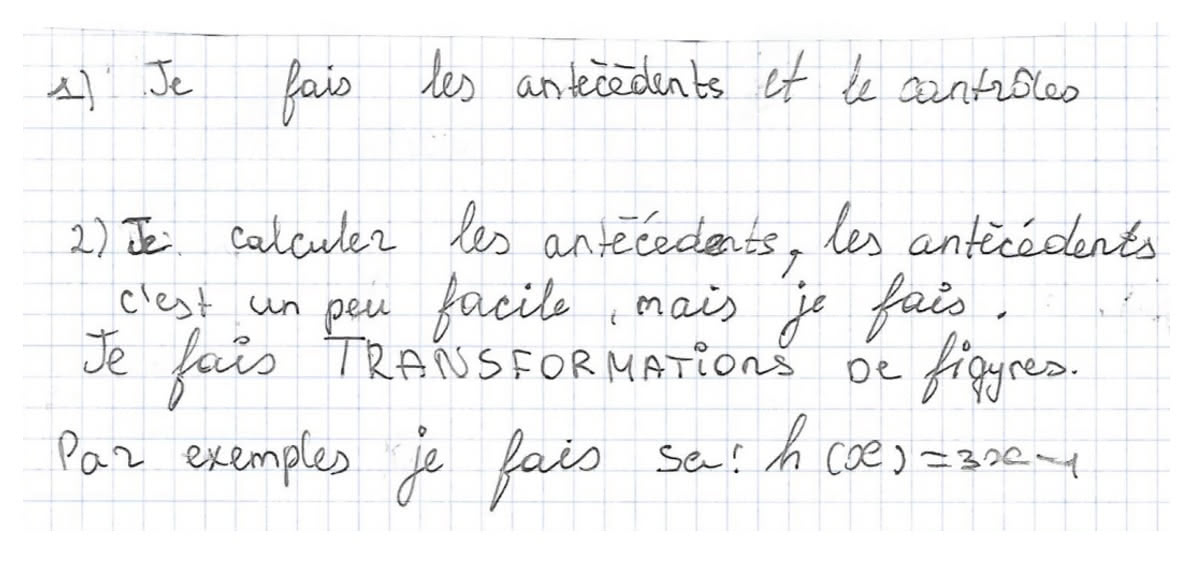 1) Je fais les antécédents et le contrôles
2) Je calculer les antécédents, les antécédents
c'est un peu facile, mais je fais.
Je fais TRANSFORMATIONS DE figyres.
Par exemples je fais sa : h(x)=3x-1